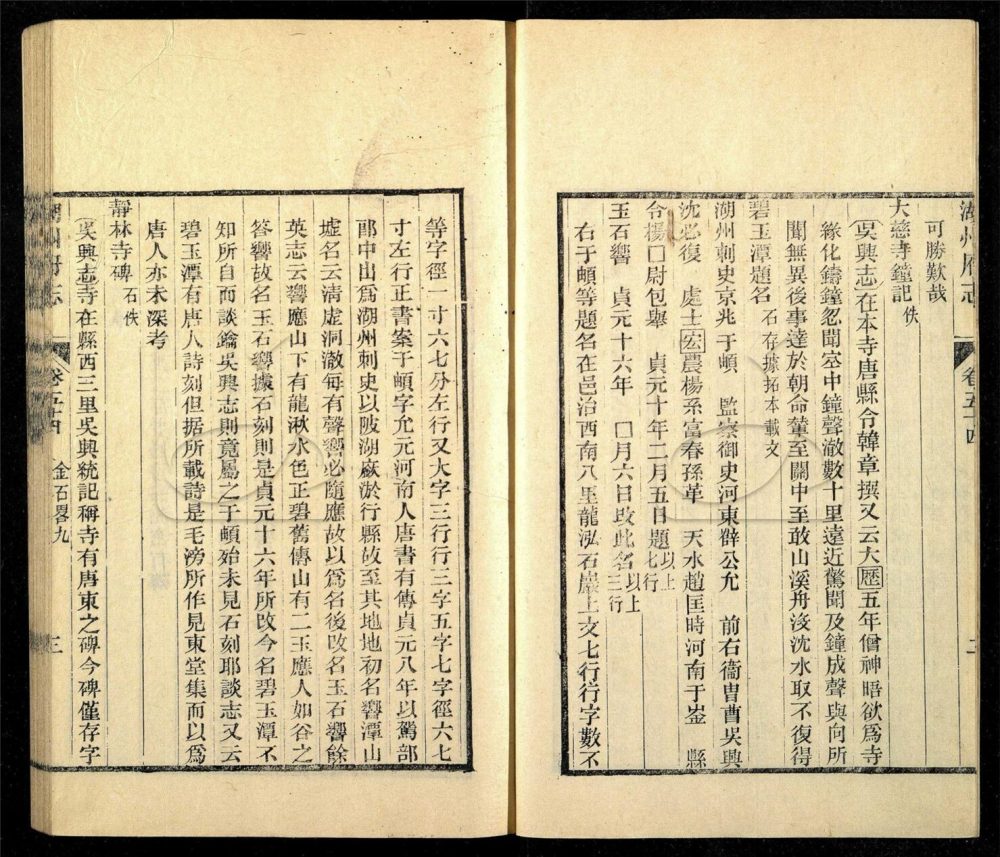 湖州府志 卷五十四 二
可勝歎哉
大慈寺鐘記佚
吳興志在本寺唐縣令韓章撰又云大歷五年僧神晤欲爲寺
緣化鑄鐘忽聞空中鐘聲澈數十里遠近驚聞及鐘成聲與向所
聞無異後事達於朝命輦至關中至敢山溪舟淩沈水取不復得
碧玉潭題名石存據拓本載文
湖州刺史京兆于頔 監察御史河東薛公允 前右衞曹曹吳興
沈必復 處士宏農楊系富春孫革 天水趙匡時河南于釜 縣
令揚囗尉包舉 貞元十年二月五日題以上七行
玉石響 貞元十六年 囗月六日改此名以上三行
右于頔等題名在邑治西南八里龍泓石巖上文七行行字數不
等字徑一寸六七分左行又大字三行行三字五字七字徑六七
寸左行正書案于頔字允元河南人唐書有傳貞元八年以駕部
郎中出爲湖州刺史以陂湖廞淤行縣故至其地地初名響潭山
墟名云清虛洞澈每有聲響必隨應故以爲名後改名玉石響餘
英志云響應山下有龍湫水色正碧舊傳山有二玉應人如谷之
答響故名玉石響據石刻則是貞元十六年所改今名碧玉潭不
知所自而談鑰吳興志則竟屬之于頔始未見石刻耶談志又云
碧玉潭有唐人詩刻但据所載詩是毛滂所作見東堂集而以爲
唐人亦未深考
靜林寺碑石佚
吳興志寺在縣西三里吳興統記稱寺有唐東之碑今碑僅存字
湖州府志 卷五十四 金石畧九 三